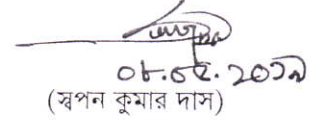 ০৮.০৫.২০১৯
(স্বপন কুমার দাস)